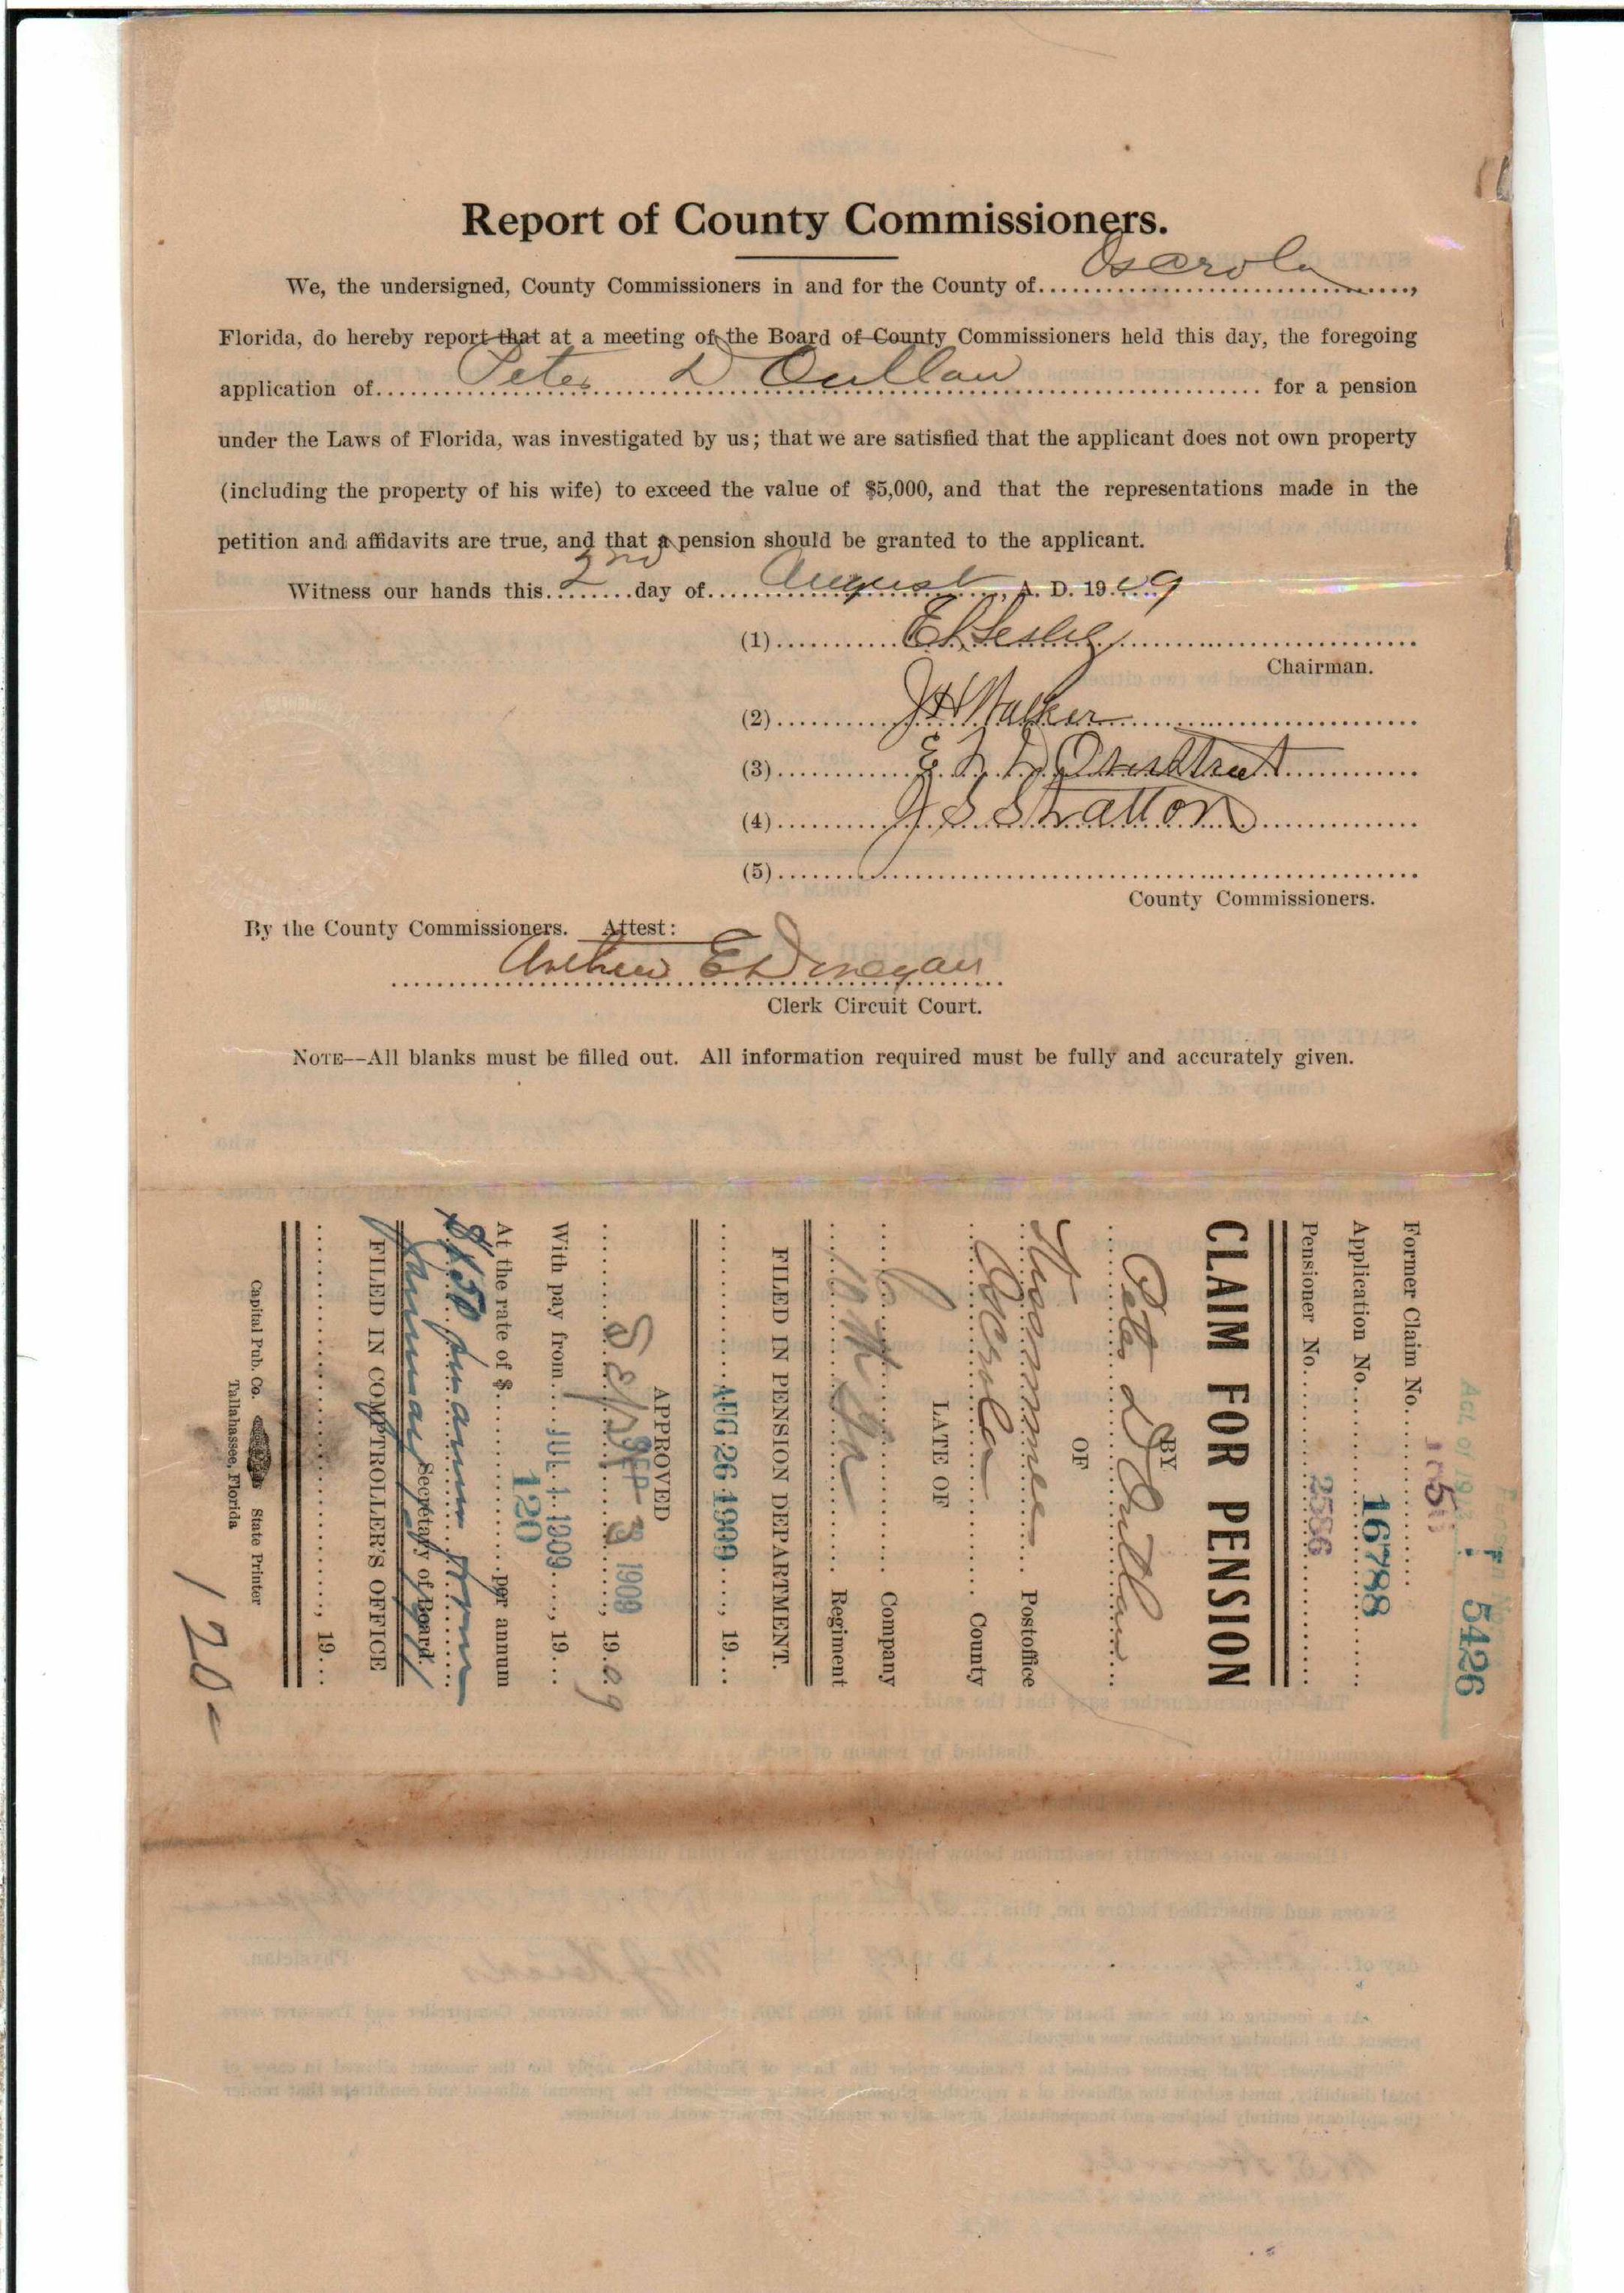 Report of County Commissioners.
We, the undersigned, County Commissioners in and for the County of Osceola,
Florida, do hereby report that at a meeting of the Board of County Commissioners held this day, the foregoing
application of Peter L Outlaw for a pension
under the Laws of Florida, was investigated by us; that we are satisfied that the applicant does not own property
(including the property of his wife) to exceed the value of $5,000, and that the representations made in the
petition and affidavits are true, and that a pension should be granted to the applicant.
Witness our hands this 2nd day of August, A. D. 1909
(1) E L Lesley
Chairman.
(2) J H Walker
(3) E L D Overstreet
(4) J S Stratton
(5)
County Commissioners.
By the County Commissioners. Attest:
Arthur E Donegan
Clerk Circuit Court.
NOTE--All blanks must be filled out. All information required must be fully and accurately given.
Act of 5426
Former Claim No.
Application No. 16788
Pensioner No. 2586
CLAIM FOR PENSION
BY
Peter L Outlaw
OF
Kissimmee Postoffice
Osceola County
LATE OF
Company
10th Ga Regiment
FILED IN PENSION DEPARTMENT.
AUG 26 1909, 19
APPROVED
Sept 3, 1909
SEP -3 1909
With pay from JUL 1 1909, 19
120
At the rate of $ per annum
$150 per annum from
Secretary of Board.
FILED IN COMPTROLLER'S OFFICE
, 19
Capital Pub. Co. State Printer
Tallahassee, Florida
120-